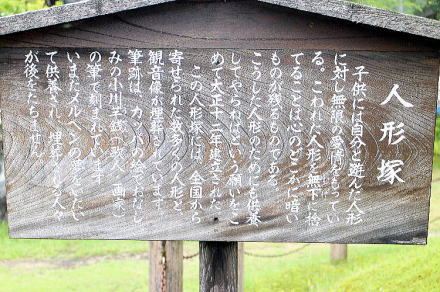 人形塚
子供には自分と遊んだ人形
に対し無限の愛情をもってい
る。こわれた人形を無下に捨
てることは心のどこかに暗い
ものが残るものである。
こうした人形のためにも供養
してやらねばという願いをこ
めて大正十二年建立された。
この人形塚には、全国から
寄せられた数多くの人形と、
観音像が埋葬されています。
筆跡は、カッパの絵でおなじ
みの小川芋銭
の筆で刻まれています
いまだメルヘンの夢をいだい
て供養され、埋葬にくる人々
が後をたちません。